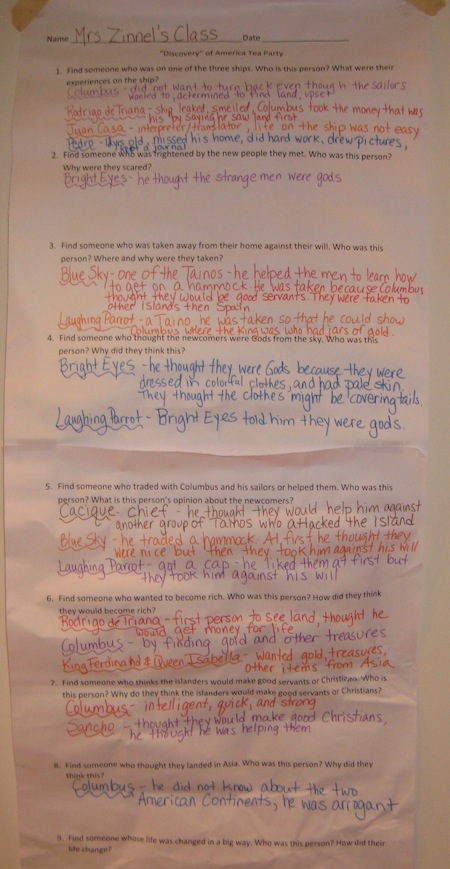 Name Mrs Zinnel's Class Date
"Discovery" of America Tea Party
1. Find someone who was on one of the three ships. Who is this person? What were their
experiences on the ship?
Columbus - did not want to turn back even though the sailors
wanted to, determined to find land, upset
Rodrigo de Triana - ship leaked, smelled, Columbus took the money that was
his by saying he saw land first
Juan Casa - interpreter/translator, life on the ship was not easy
Pedro - old, missed his home, did hard work, drew pictures,
2. Find someone who was frightened by the new people they met. Who was this person?
Why were they scared?
Bright Eyes - he thought the strange men were gods
3. Find someone who was taken away from their home against their will. Who was this
person? Where and why were they taken?
Blue Sky - one of the Tainos - he helped the men to learn how
to get on a hammock. He was taken because Columbus
thought they would be good servants. They were taken to
other islands then Spain
Laughing Parrot - a Taino, he was taken so that he could show
Columbus where the king was who had jars of gold.
4. Find someone who thought the newcomers were Gods from the sky. Who was this
person? Why did they think this?
Bright Eyes - he thought they were Gods because they were
dressed in colorful clothes, and had pale skin.
They thought the clothes might be covering tails.
Laughing Parrot - Bright Eyes told him they were gods.
5. Find someone who traded with Columbus and his sailors or helped them. Who was this
person? What is this person's opinion about the newcomers?
Cacique - chief - he thought they would help him against
another group of Tainos who attacked the island
Blue Sky - he traded a hammock. At first he thought they
were nice but then they took him against his will
Laughing Parrot - got a cap - he liked them at first but
they took him against his will
6. Find someone who wanted to become rich. Who was this person? How did they think
they would become rich?
Rodrigo de Triana - first person to see land, thought he
would get money for life
Columbus - by finding gold and other treasures
King Ferdinand & Queen Isabella - wanted gold, treasures,
other items from Asia
7. Find someone who thinks the islanders would make good servants or Christians. Who is
this person? Why do they think the islanders would make good servants or Christians?
Columbus - intelligent, quick, and strong
Sancho - thought they would make good Christians,
he thought he was helping them
8. Find someone who thought they landed in Asia. Who was this person? Why did they
think this?
Columbus - he did not know about the two
American Continents, he was arrogant
9. Find someone whose life was changed in a big way. Who was this person? How did their
life change?